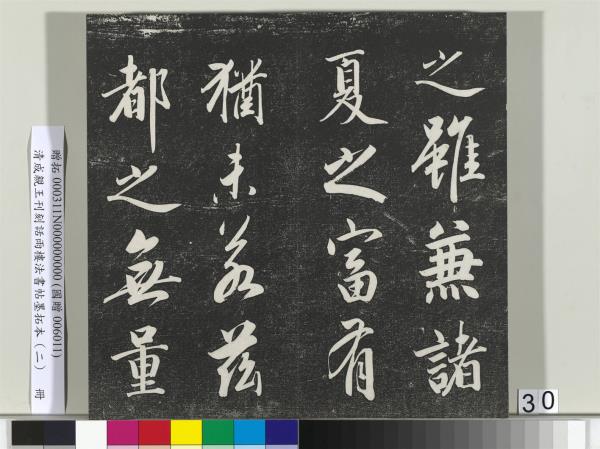 之雖兼諸
夏之富有
猶未若茲
都之無量
贈拓 000311N000000000 (國贈 006011)
清成親王刊刻詒晉樓法書帖墨拓本（二） 冊
30